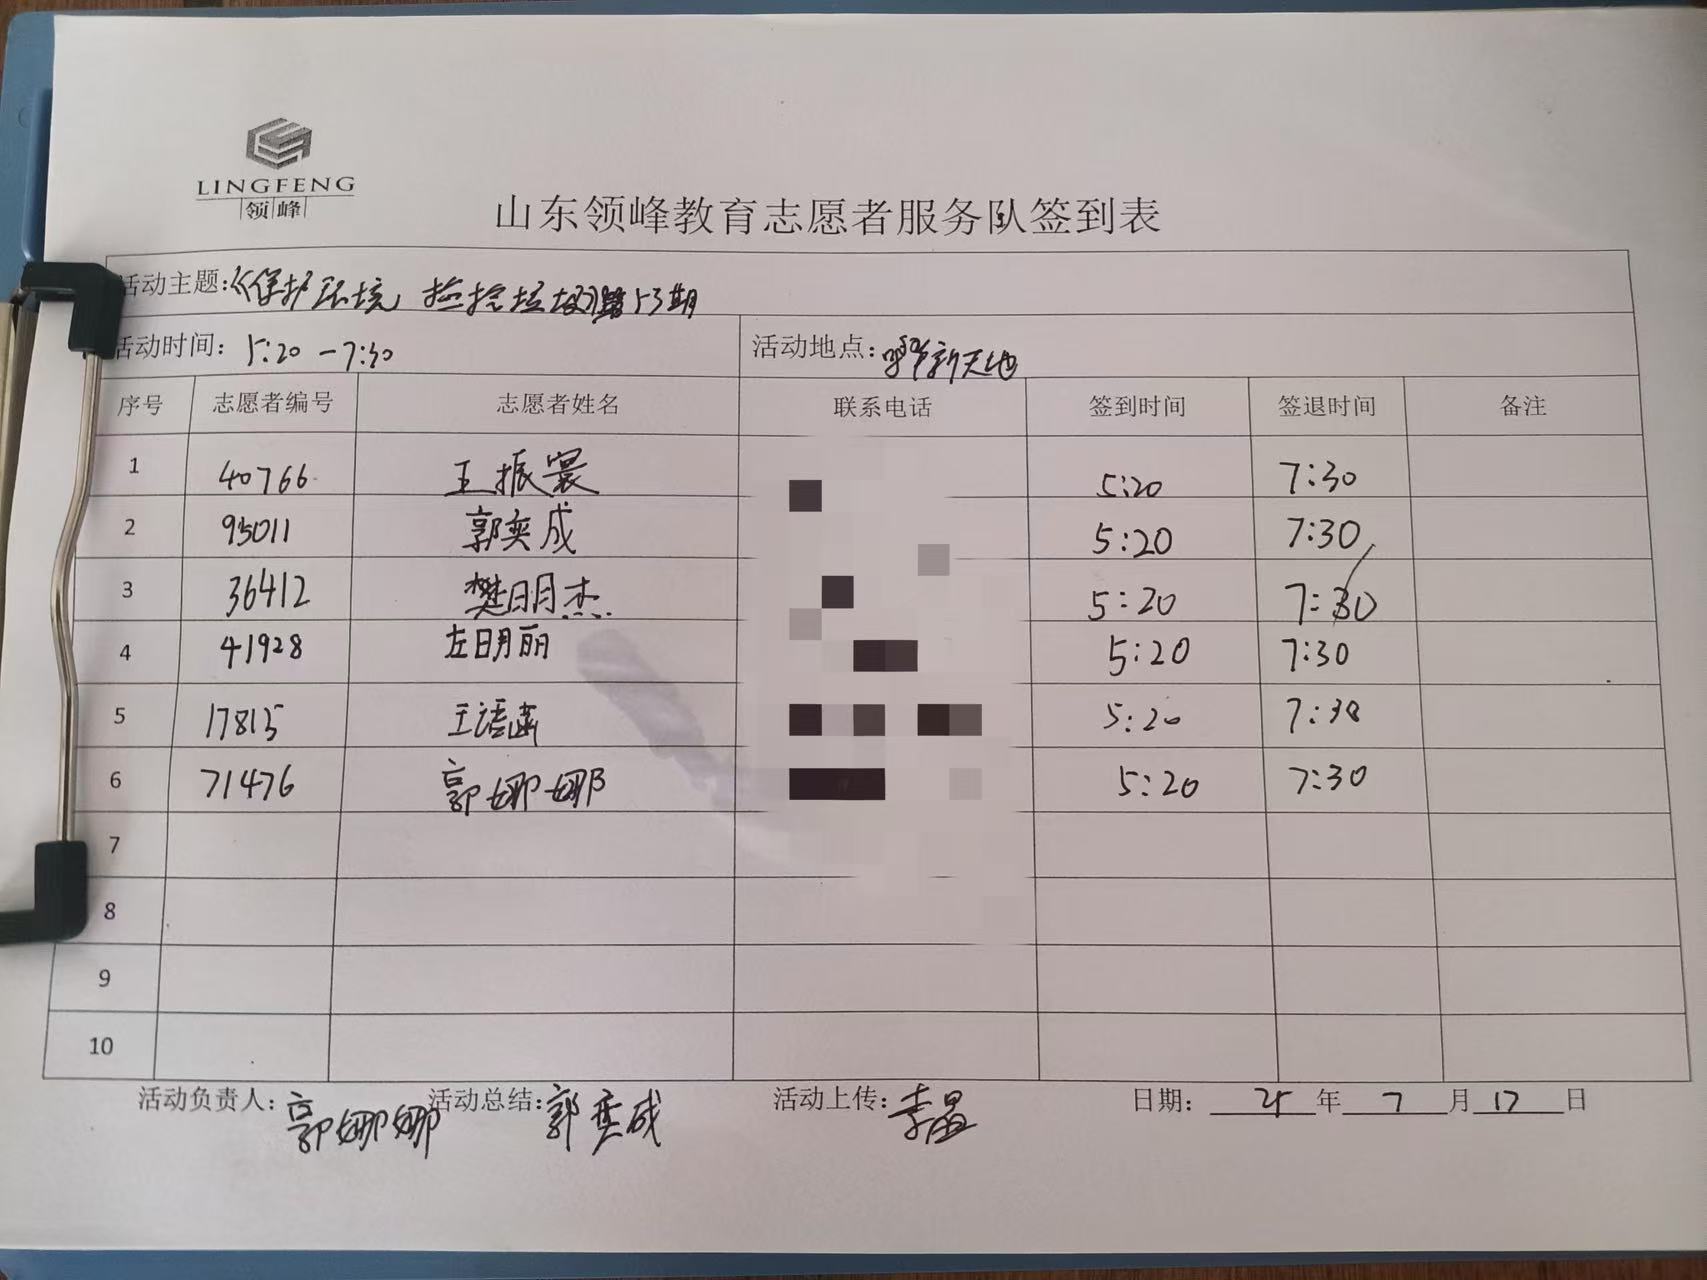 LINGFENG
领峰
山东领峰教育志愿者服务队签到表
活动主题:《保护环境 捡拾垃圾》第53期
活动时间: 5:20-7:30 活动地点: 新天地
序号 志愿者编号 志愿者姓名 联系电话 签到时间 签退时间 备注
1 40766 王振寰 5:20 7:30
2 95011 郭奕成 5:20 7:30
3 36412 樊明杰 5:20 7:30
4 41928 左明丽 5:20 7:30
5 17815 王语菡 5:20 7:30
6 71476 郭娜娜 5:20 7:30
7
8
9
10
活动负责人: 郭娜娜 活动总结: 郭奕成 活动上传: 李晶 日期: 25 年 7 月 17 日